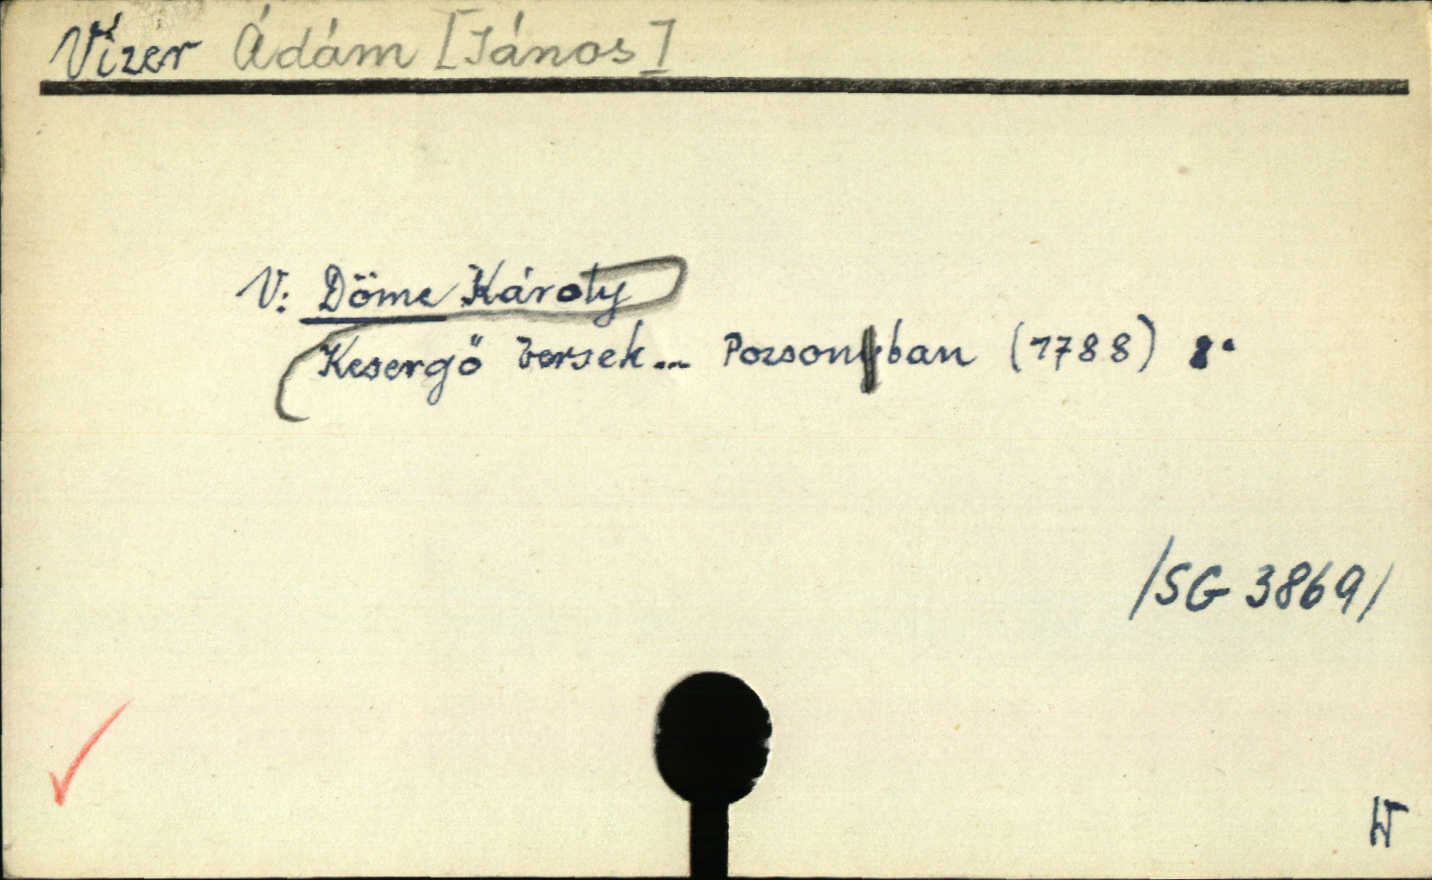 Vízér Ádám [János]
V: Döme Károly
Kesergő versek... Pozsonyban (1788) 8°
/SG 3869/